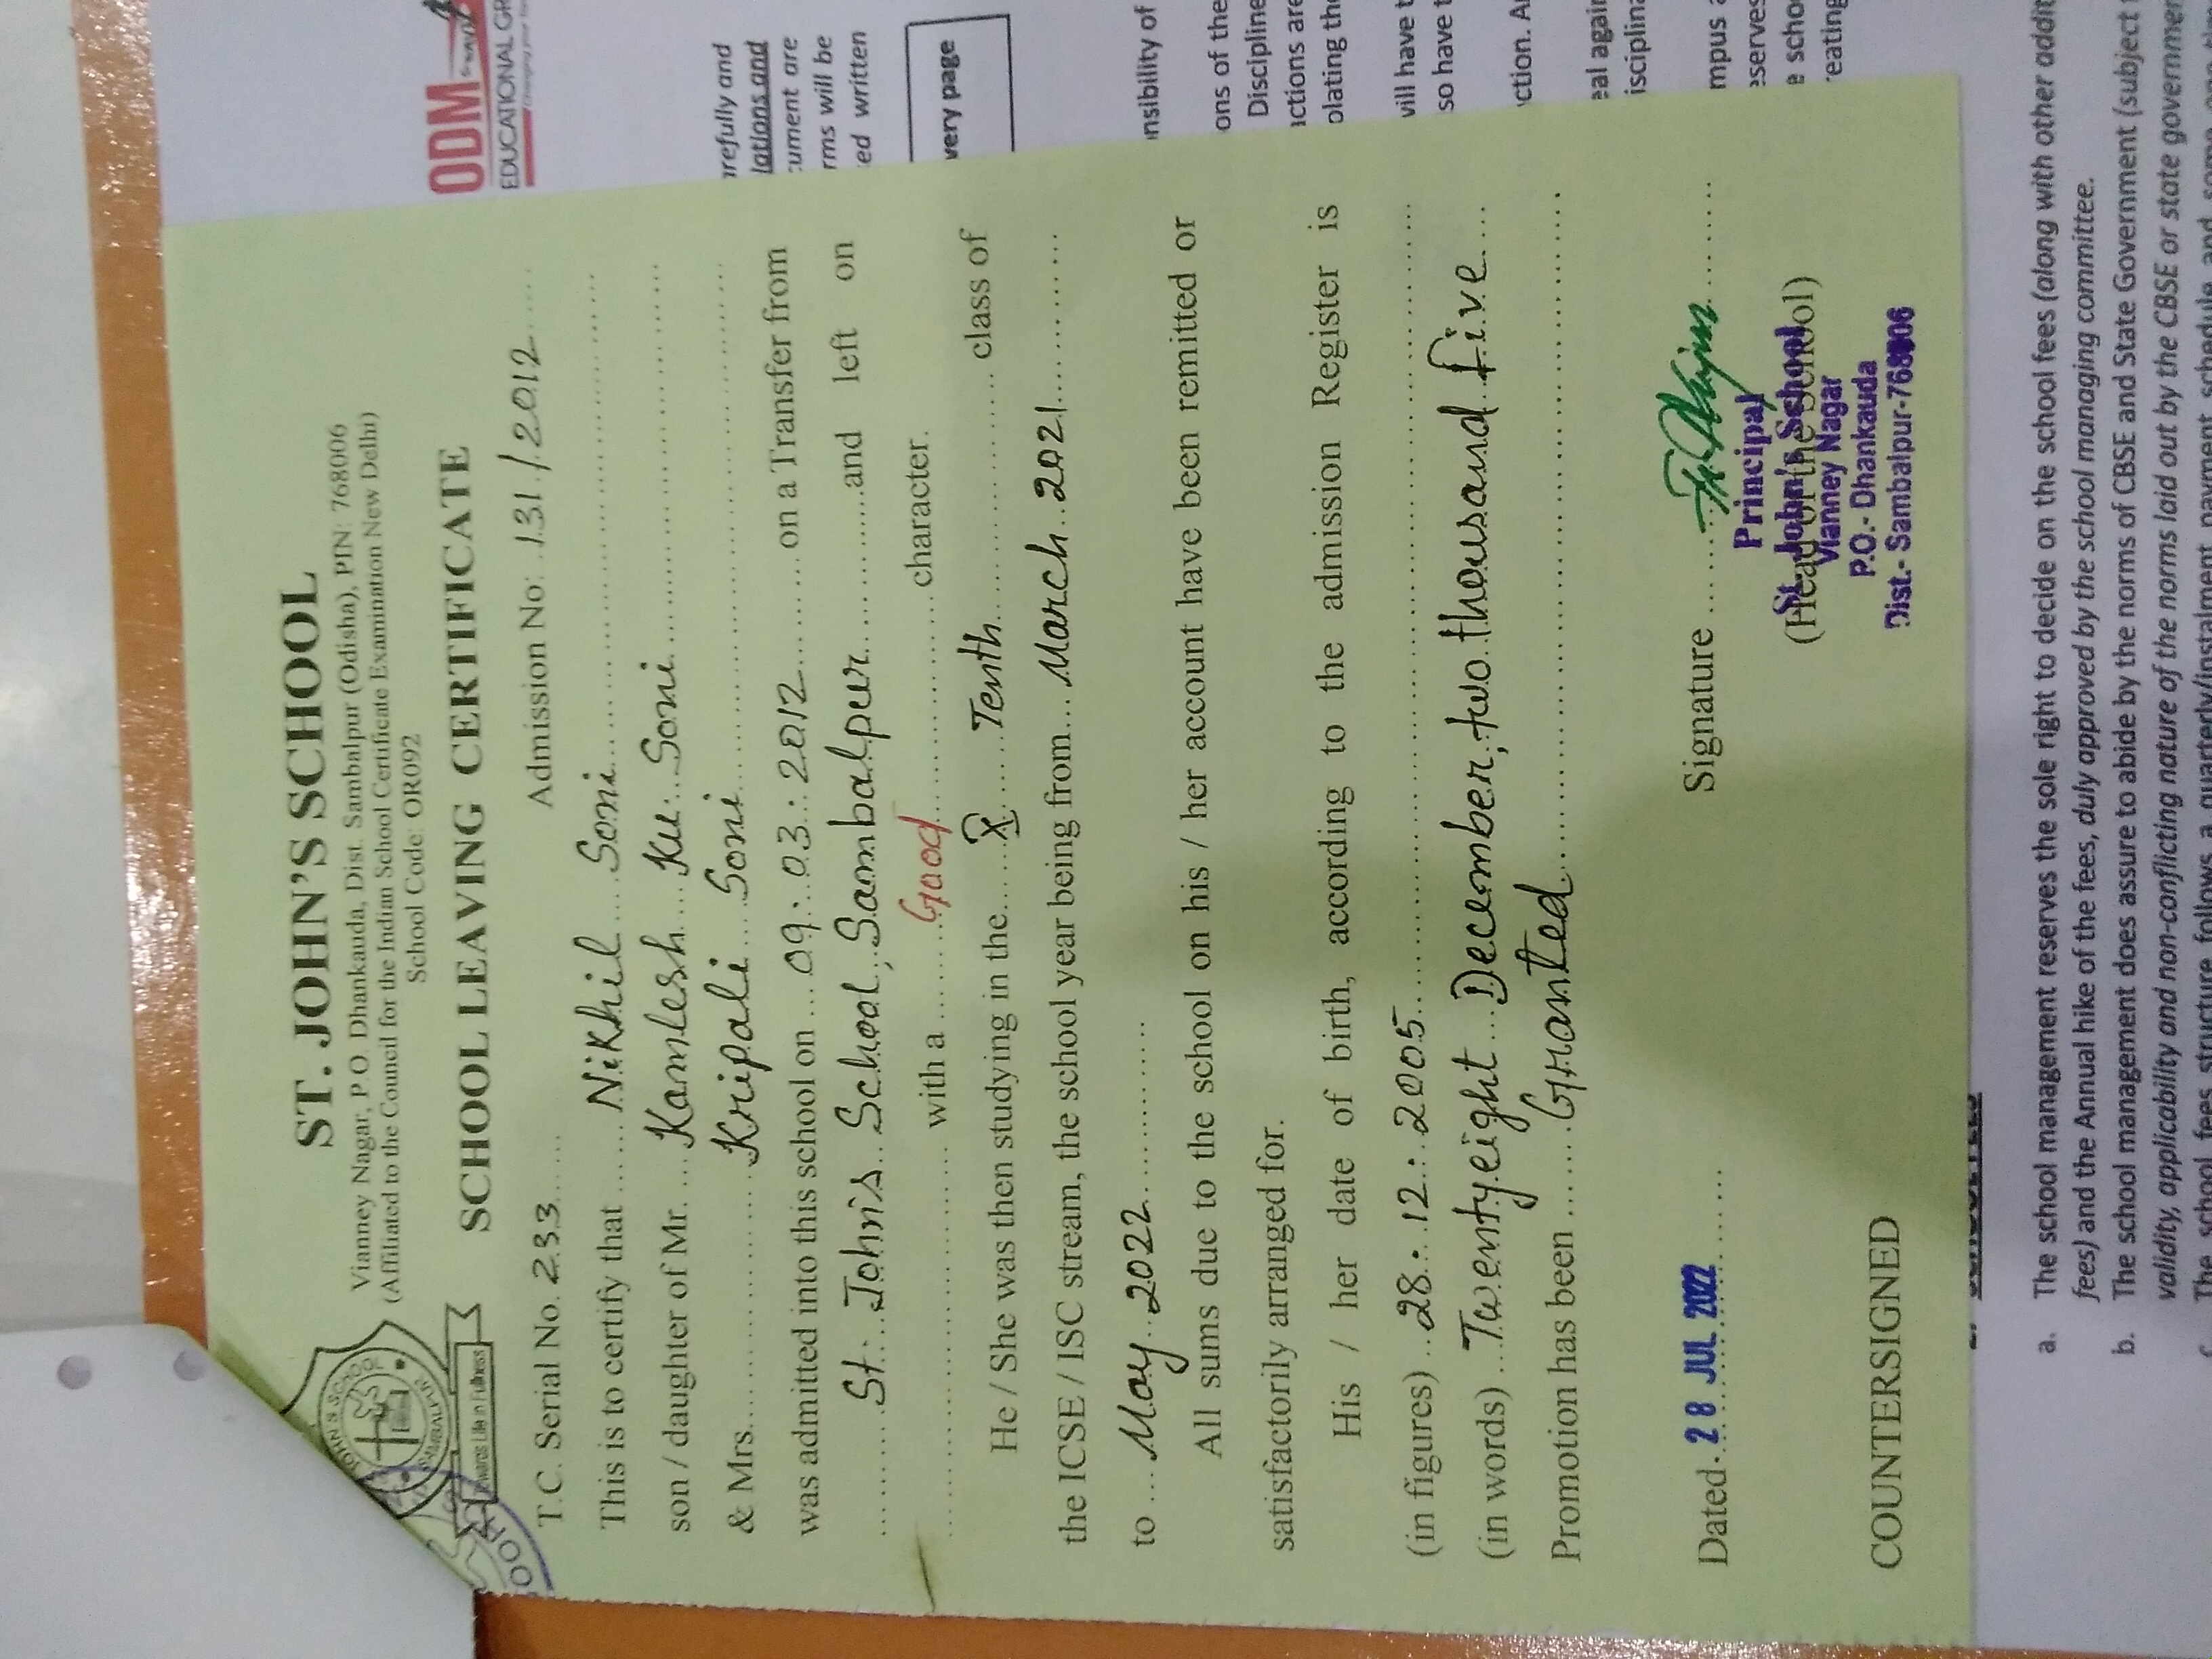 ST. JOHN'S SCHOOL
Vianney Nagar, P.O. Dhankauda, Dist. Sambalpur (Odisha), PIN: 768006
(Affiliated to the Council for the Indian School Certificate Examination New Delhi)
School Code: OR092
SCHOOL LEAVING CERTIFICATE
Towards Life in Fullness
T.C. Serial No. 233 Admission No: 131/2012
This is to certify that Nikhil Soni
son / daughter of Mr. Kamlesh Ku. Soni
& Mrs. Kripali Soni
was admitted into this school on 09.03.2012 on a Transfer from
St. John's School, Sambalpur and left on
with a Good character.
He / She was then studying in the X Tenth class of
the ICSE / ISC stream, the school year being from March 2021
to May 2022
All sums due to the school on his / her account have been remitted or
satisfactorily arranged for.
His / her date of birth, according to the admission Register is
(in figures) 28.12.2005
(in words) Twenty eight December, two thousand five
Promotion has been Granted
Dated 28 JUL 2022 Signature
Principal
St. John's School
(Head of the School)
Vianney Nagar
P.O.- Dhankauda
Dist.- Sambalpur-768006
COUNTERSIGNED
ODM
EDUCATIONAL GR
refully and
lations and
cument are
rms will be
ed written
very page
nsibility of
ons of the
Discipline
ctions are
olating the
will have t
so have t
ction. A
eal again
isciplina
mpus a
eserves
e scho
reating
a. The school management reserves the sole right to decide on the school fees (along with other addit
fees) and the Annual hike of the fees, duly approved by the school managing committee.
b. The school management does assure to abide by the norms of CBSE and State Government (subject t
validity, applicability and non-conflicting nature of the norms laid out by the CBSE or state governmen
The school fees structure follows a quarterly/instalment payment schedule and